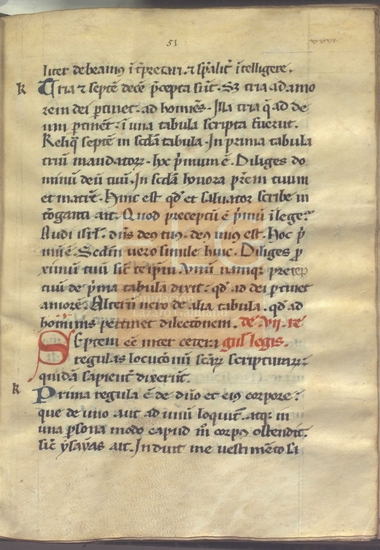 51
liter debeamus i͞terp̄tari. ⁊ sp̄alit̄ i͞telligere.
k Tria ⁊ septē decē p̄cepta sūt. S; tria ad amo
rem dei p̄tinet. ad homiēs. Illa tria q̄ ad de
um p̄tinēt. i͞ una tabula scripta fuerūt.
Reliq̄ septē in scd̄am tabula. In prima tabula
triū mandator. hoc p̄mum ē. Diliges do
minū deū tuū. In scd̄am honora p̄rem tuum
et matrē. Hinc est qd̄ et saluator scribe in
t͞roganti ait. Quod preceptū ē p̄mū i͞ lege?
Audi isrl̄. dn̄s deo tuus. deus unus est. Hoc p̄
mū ē. Secdm̄ uero simile huic. Diliges p̄
ximū tuū sic̄ te ip̄m. Unū namq; precep
tuū de p̄ma tabula dixit. qd̄ ad dei p̄tinet
amorē. Alterū uero de alia tabula. qd̄ ad
hominis pertinet dilectionem. de. vii. re
Septem eē inter ceteri gulis legis.
regulas locutionū scar̄ scripturarum
quidam sapient̄ dixerūt.
k Prima regula ē de dn̄o et eius corpore.
que de uno aut ad unū loquit̄. atq; in
una p̄sona modo caput m̄ corpus ostendit.
sic̄ ysayas ait. Induit me uestimēto sa